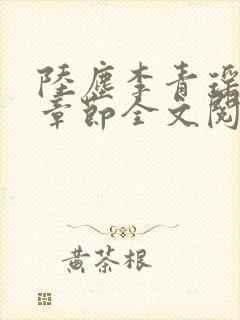 陸塵李青瑶
章節全文閱
黃茶根